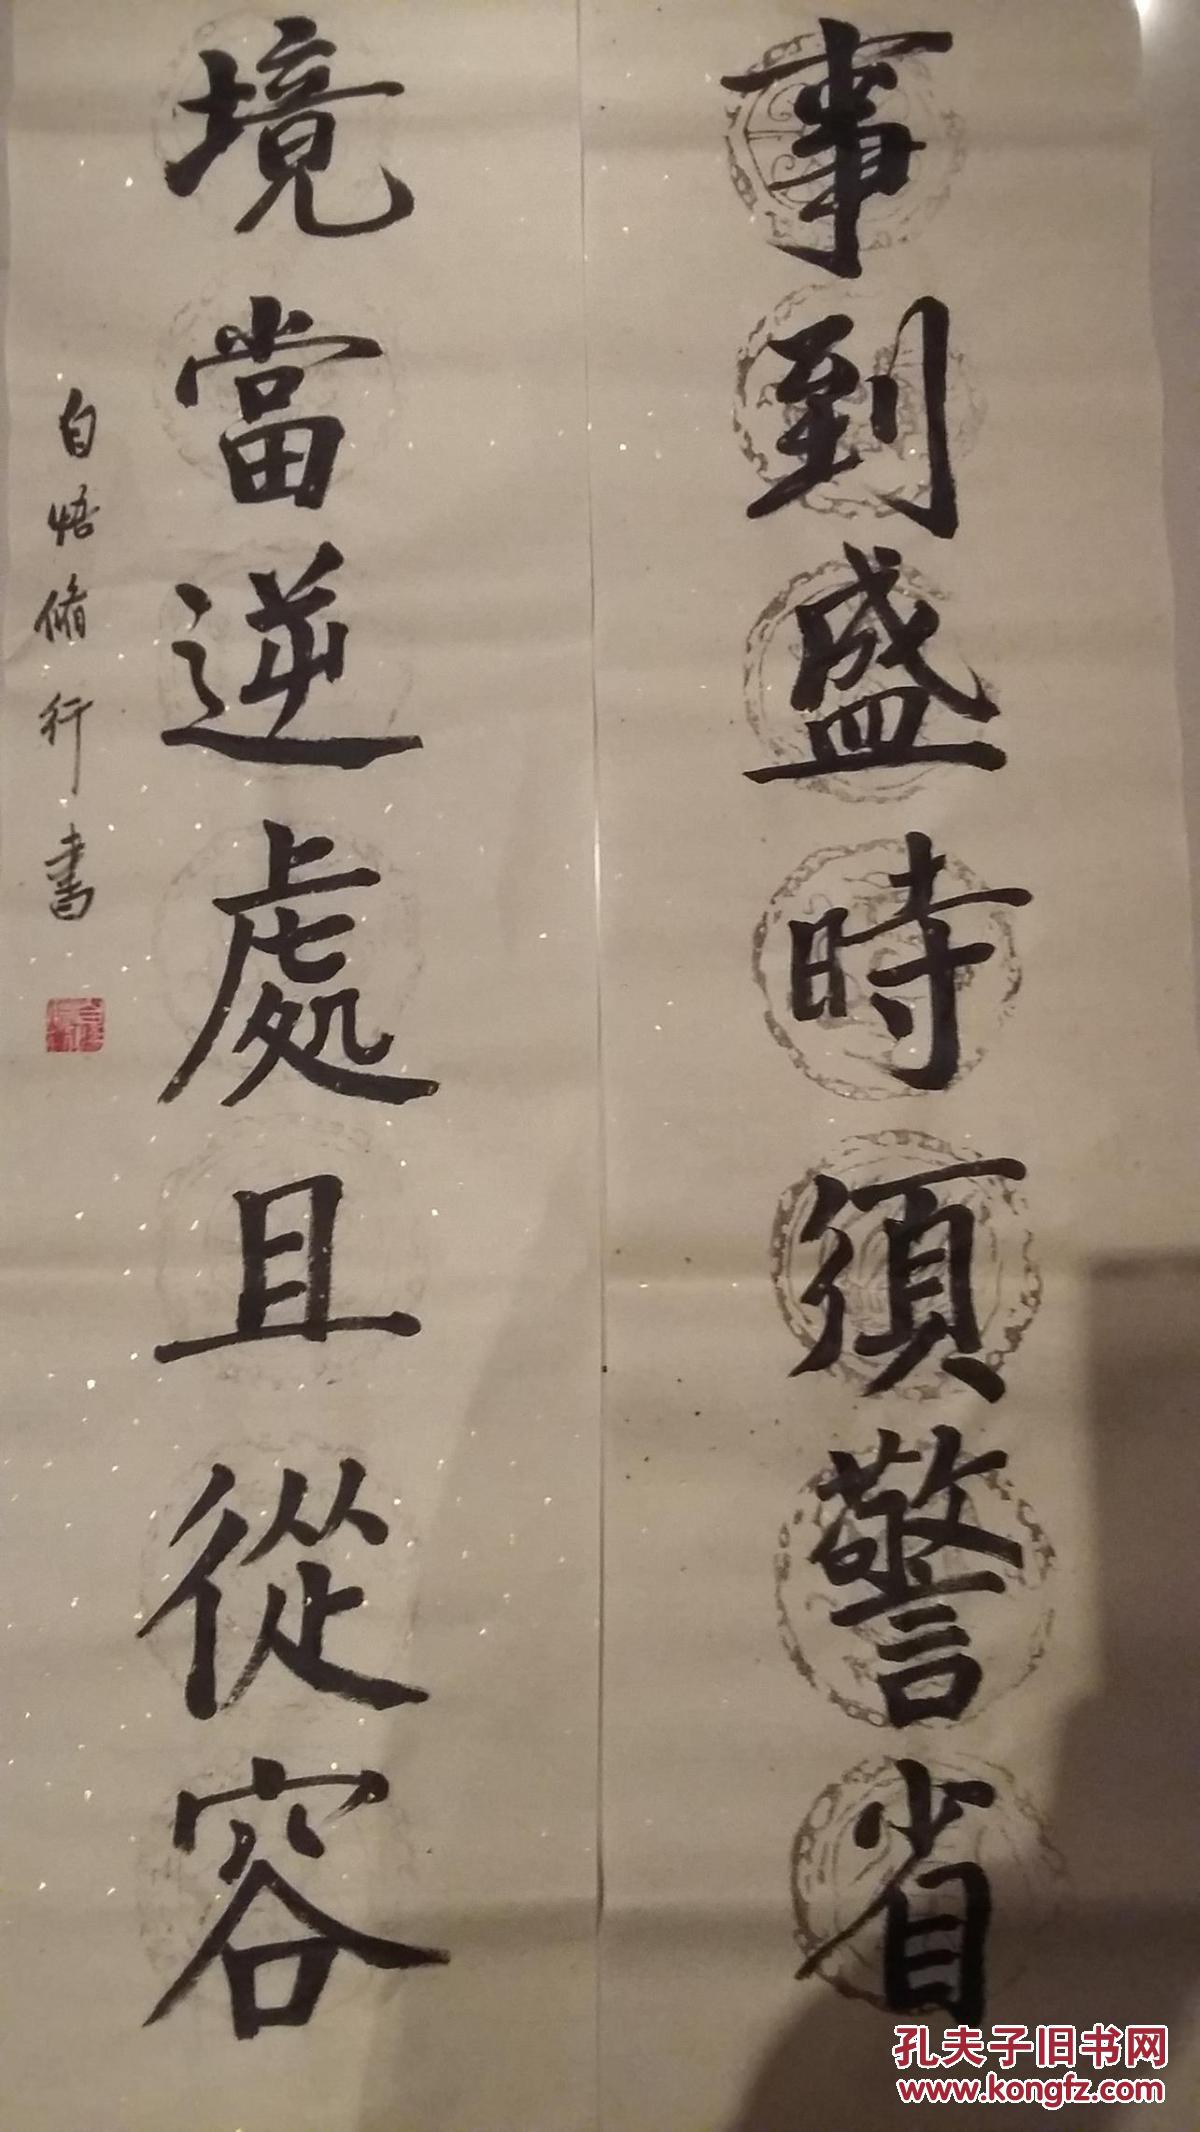 事到盛時須警省
境當逆處且從容
自悟脩行書
孔夫子旧书网
www.kongfz.com